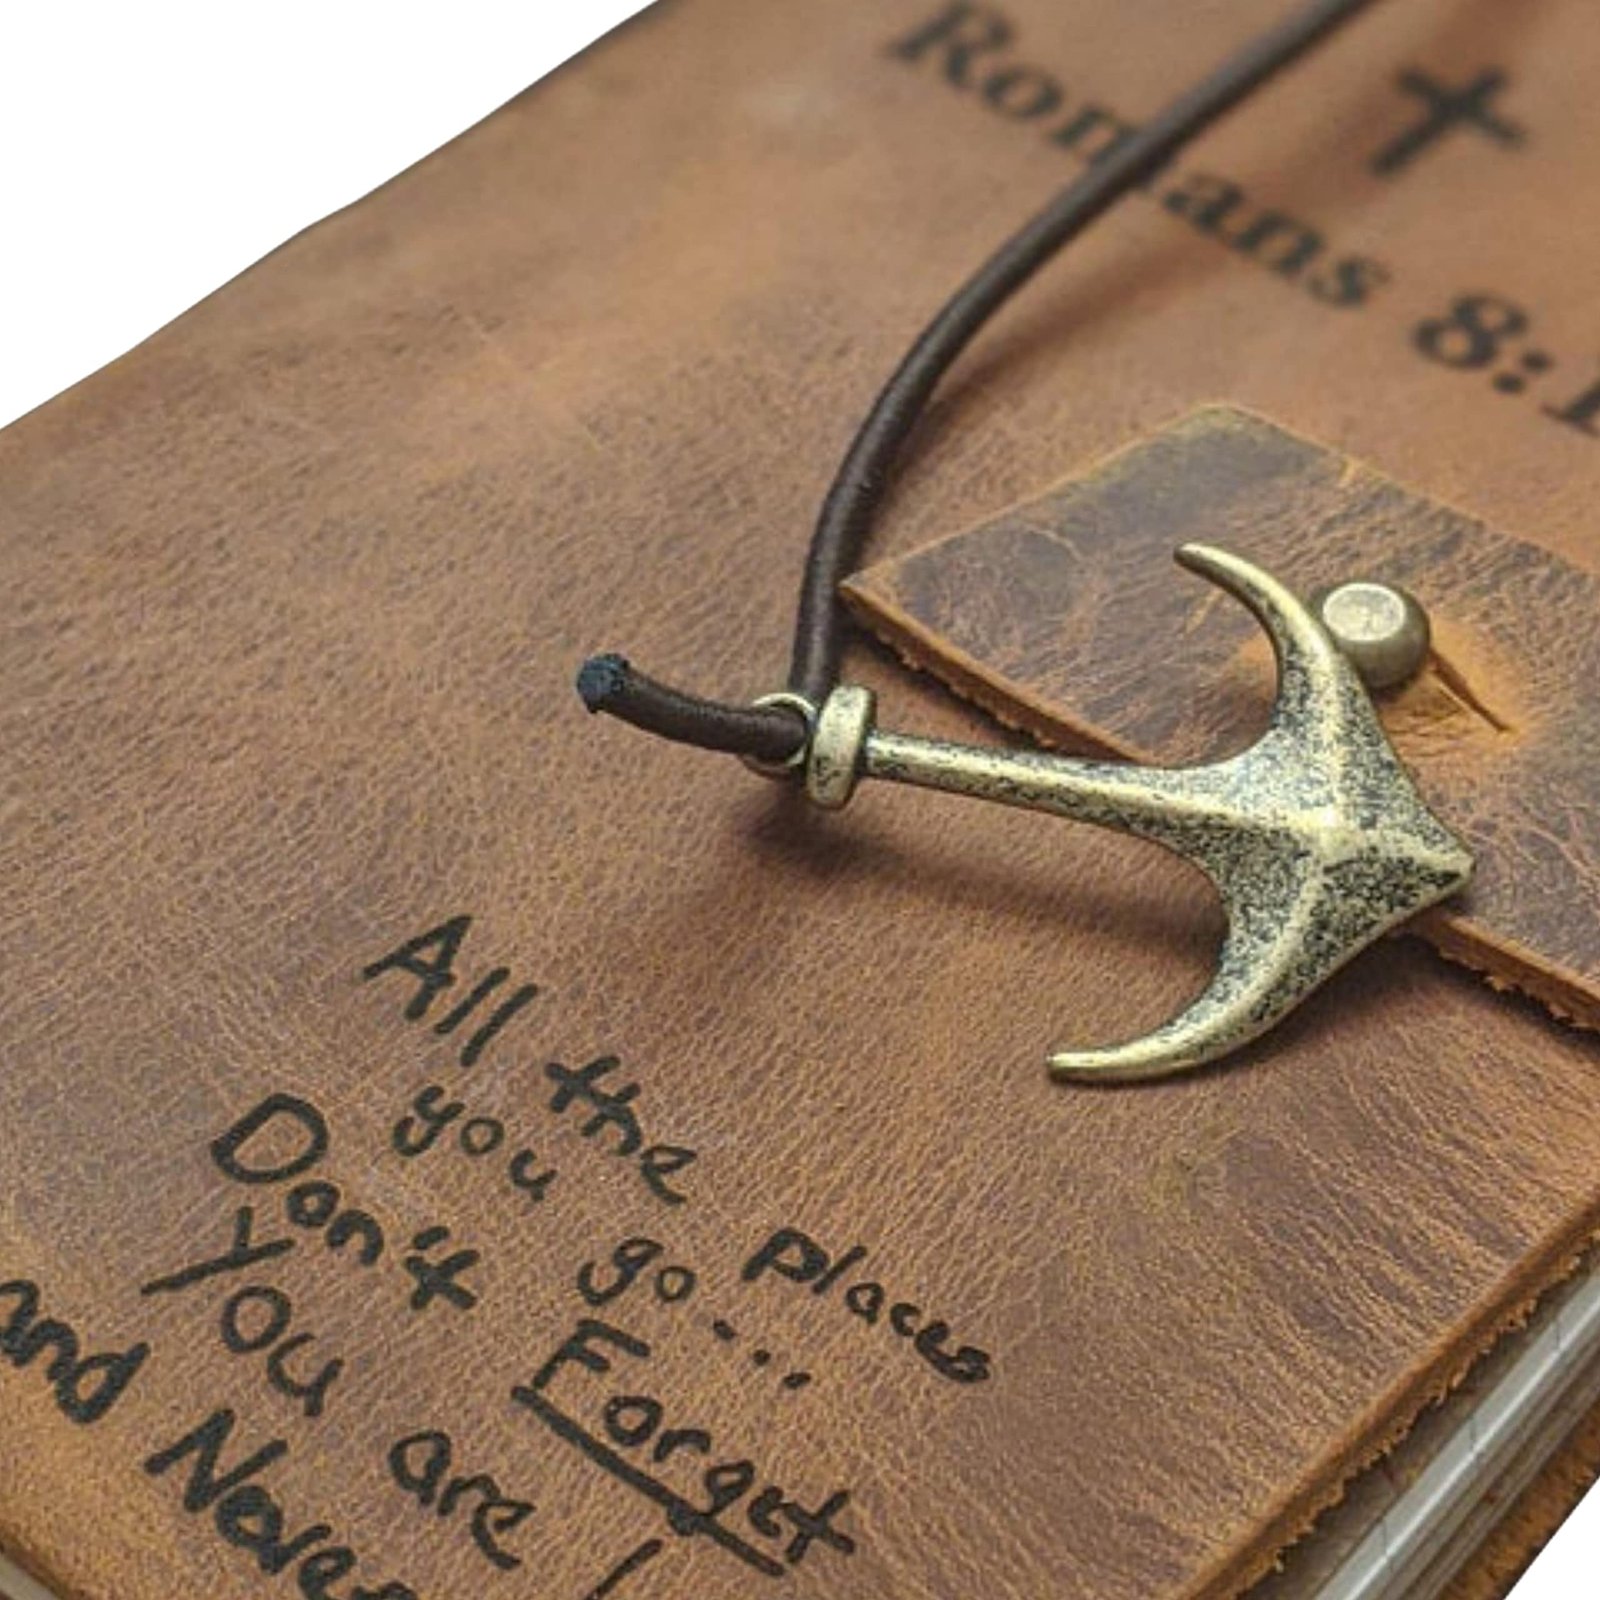 Romans 8:1
All the places
you go...
Don't Forget
You are
and Never